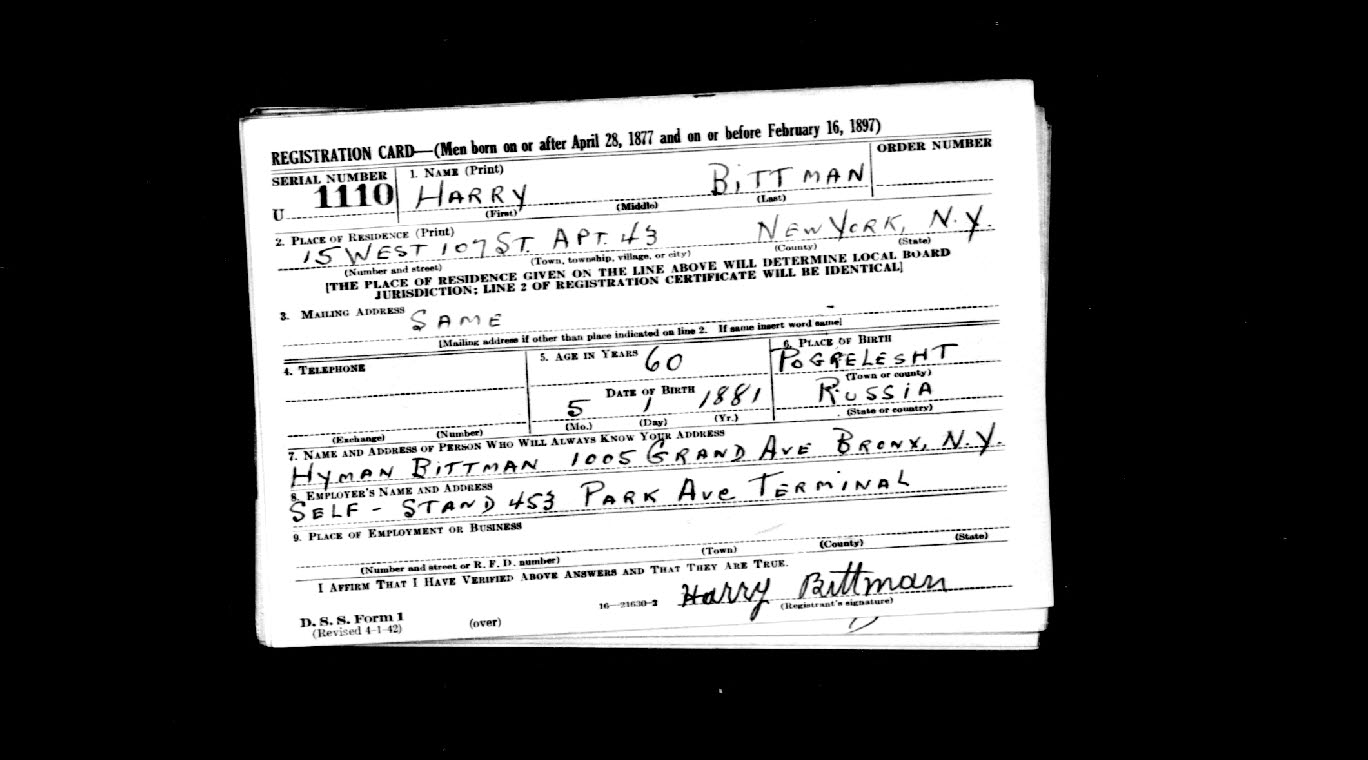 REGISTRATION CARD—(Men born on or after April 28, 1877 and on or before February 16, 1897)
SERIAL NUMBER
U 1110
1. NAME (Print)
HARRY BITTMAN
(First) (Middle) (Last)
ORDER NUMBER
2. PLACE OF RESIDENCE (Print)
15 WEST 107 ST. APT. 43 NEW YORK, N.Y.
(Number and street) (Town, township, village, or city) (County) (State)
[THE PLACE OF RESIDENCE GIVEN ON THE LINE ABOVE WILL DETERMINE LOCAL BOARD
JURISDICTION; LINE 2 OF REGISTRATION CERTIFICATE WILL BE IDENTICAL]
3. MAILING ADDRESS
SAME
[Mailing address if other than place indicated on line 2. If same insert word same]
4. TELEPHONE
(Exchange) (Number)
5. AGE IN YEARS
60
DATE OF BIRTH
5 1 1881
(Mo.) (Day) (Yr.)
6. PLACE OF BIRTH
POGRELESHT
(Town or county)
RUSSIA
(State or country)
7. NAME AND ADDRESS OF PERSON WHO WILL ALWAYS KNOW YOUR ADDRESS
HYMAN BITTMAN 1005 GRAND AVE BRONX, N.Y.
8. EMPLOYER'S NAME AND ADDRESS
SELF - STAND 453 PARK AVE TERMINAL
9. PLACE OF EMPLOYMENT OR BUSINESS
(Number and street or R. F. D. number) (Town) (County) (State)
I AFFIRM THAT I HAVE VERIFIED ABOVE ANSWERS AND THAT THEY ARE TRUE.
Harry Bittman
(Registrant's signature)
D. S. S. Form 1
(Revised 4-1-42)
(over)
16—21630-2